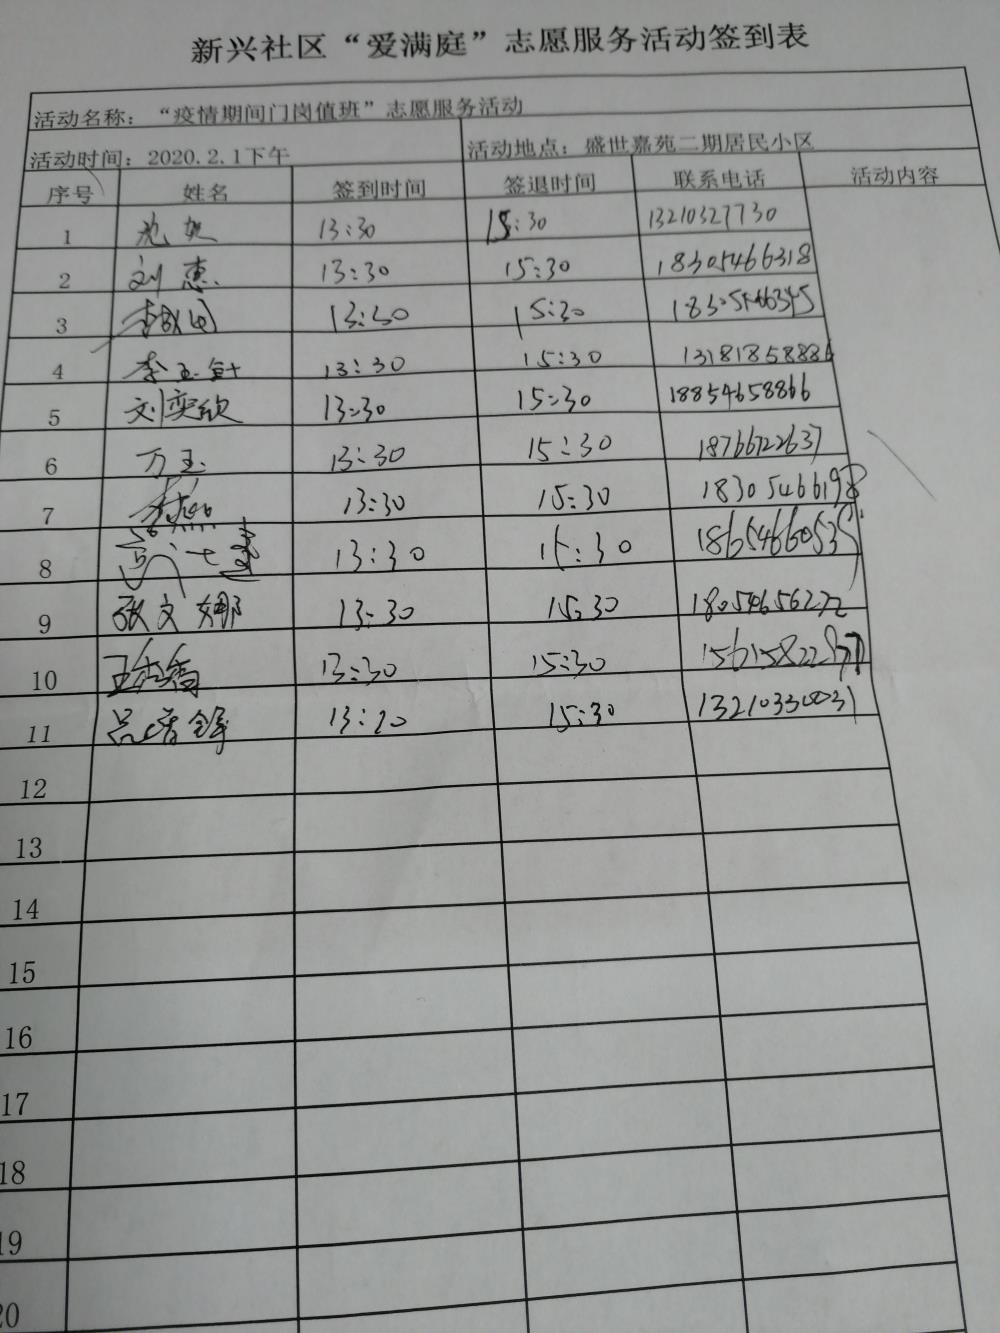 新兴社区“爱满庭”志愿服务活动签到表
活动名称：“疫情期间门岗值班”志愿服务活动
活动时间：2020.2.1下午 活动地点：盛世嘉苑二期居民小区
序号 姓名 签到时间 签退时间 联系电话 活动内容
1 13:30 15:30 13210327730
2 刘惠 13:30 15:30 18305466318
3 13:30 15:30 18305466345
4 李玉针 13:30 15:30 13181858886
5 刘奕欣 13:30 15:30 18854658866
6 万玉 13:30 15:30 18766722637
7 李燕 13:30 15:30 18305466198
8 13:30 15:30
9 张文娜 13:30 15:30 18054656272
10 13:30 15:30
11 13:20 15:30 13210330031
12
13
14
15
16
17
18
19
20